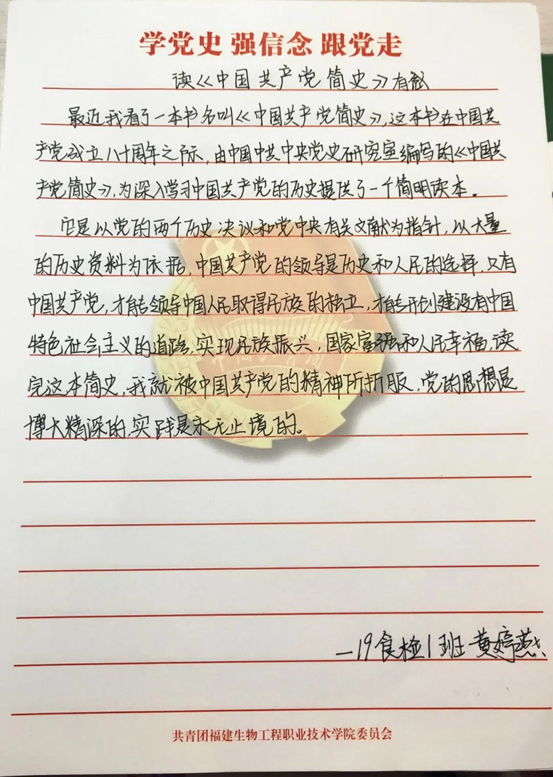 学党史 强信念 跟党走
读《中国共产党简史》有感
最近我看了一本书名叫《中国共产党简史》,这本书在中国共
产党成立八十周年之际,由中国中共中央党史研究室编写的《中国共
产党简史》,为深入学习中国共产党的历史提供了一个简明读本。
它是以党的两个历史决议和党中央有关文献为指针,以大量
的历史资料为依据,中国共产党的领导是历史和人民的选择,只有
中国共产党,才能领导中国人民取得民族的独立,才能开创建设有中国
特色社会主义的道路,实现民族振兴,国家富强和人民幸福,读
完这本简史,我就被中国共产党的精神所折服,党的思想是
博大精深的,实践是永无止境的。
—19食检1班 黄婷燕
共青团福建生物工程职业技术学院委员会